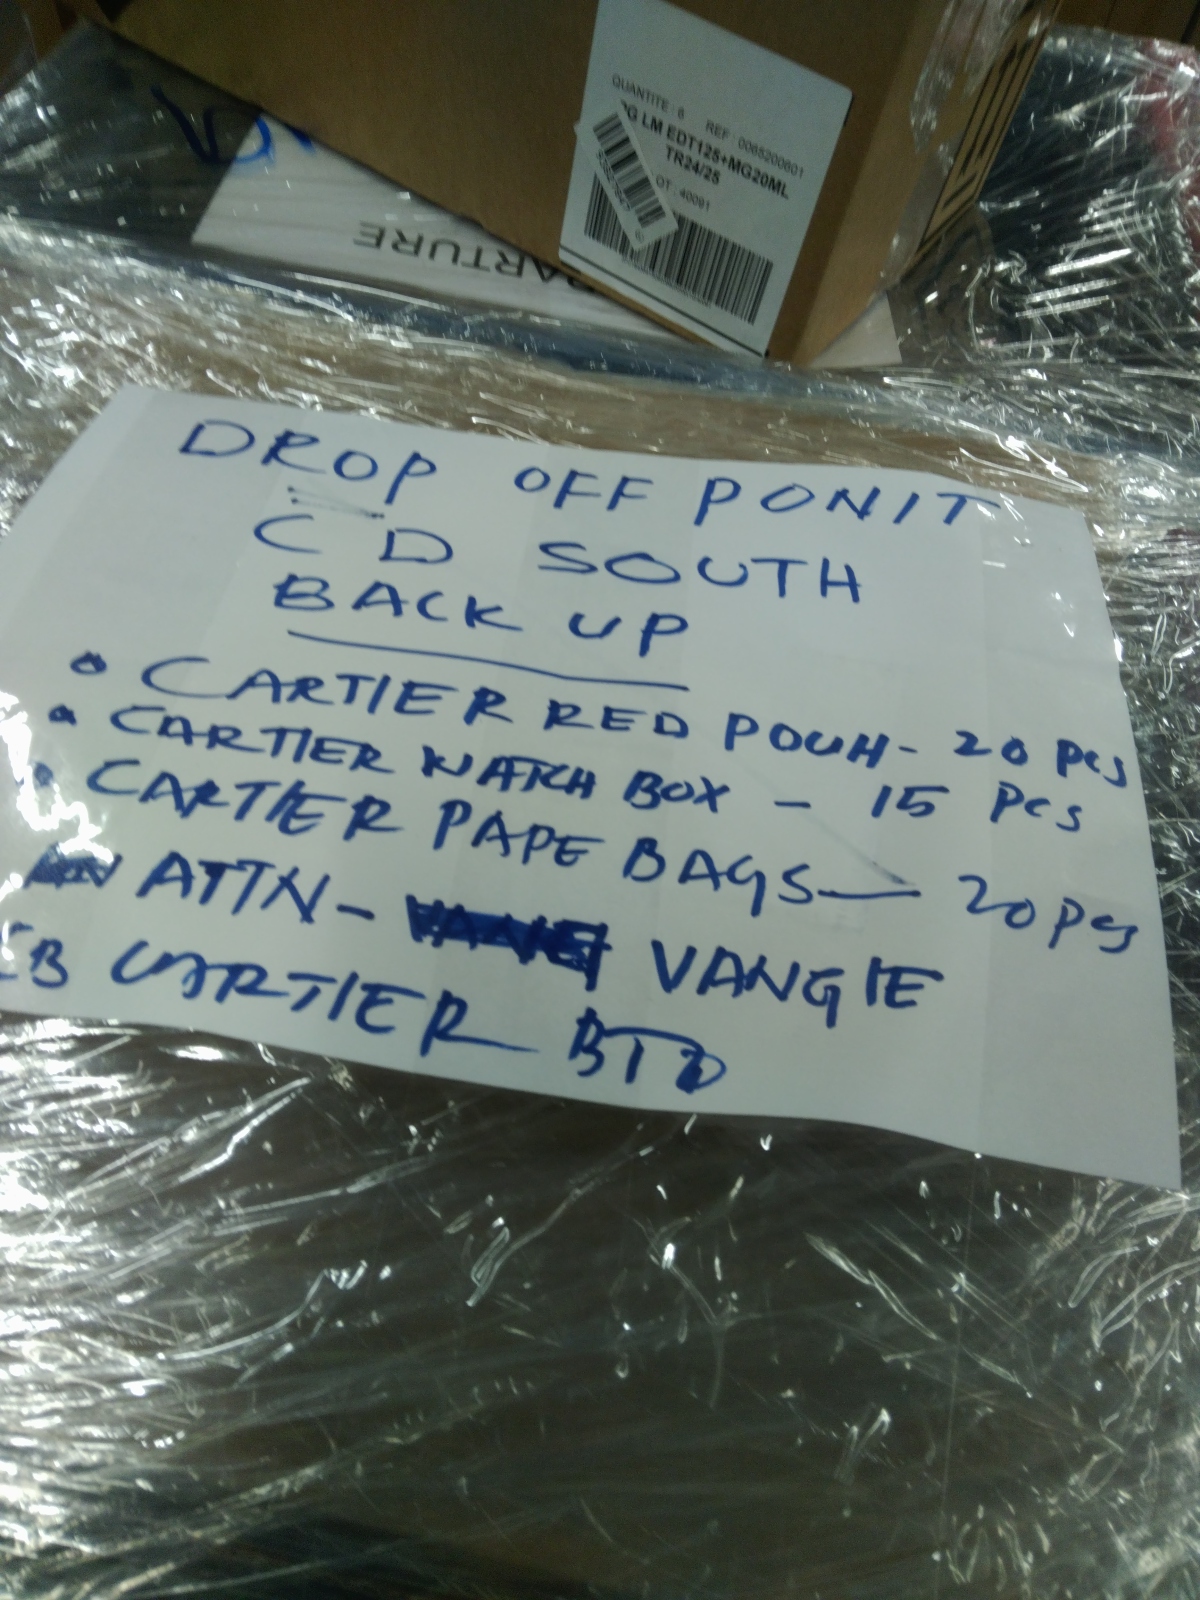 QUANTITE : 6 REF : 0065200601
G LM EDT125+MG20ML
TR24/25
OT : 40091
ARTURE
DROP OFF PONIT
C D SOUTH
BACK UP
• CARTIER RED POUH - 20 Pcs
• CARTIER WATCH BOX - 15 Pcs
• CARTIER PAPE BAGS — 20 pcs
ATTN - VANGIE
CARTIER